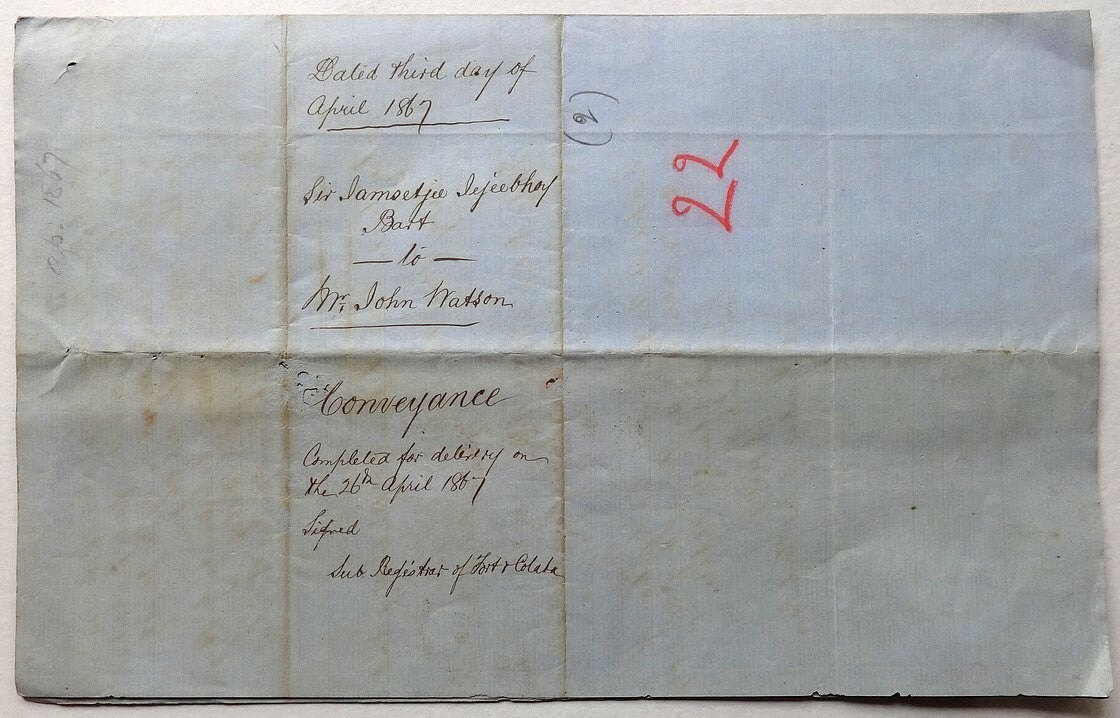 Dated third day of
April 1867
Sir Jamsetjee Jejeebhoy
Bart
— to —
Mr. John Watson
Conveyance
Completed for delivery on
the 26th April 1867
Signed
Sub Registrar of Fort & Colaba
(16)
22
1867